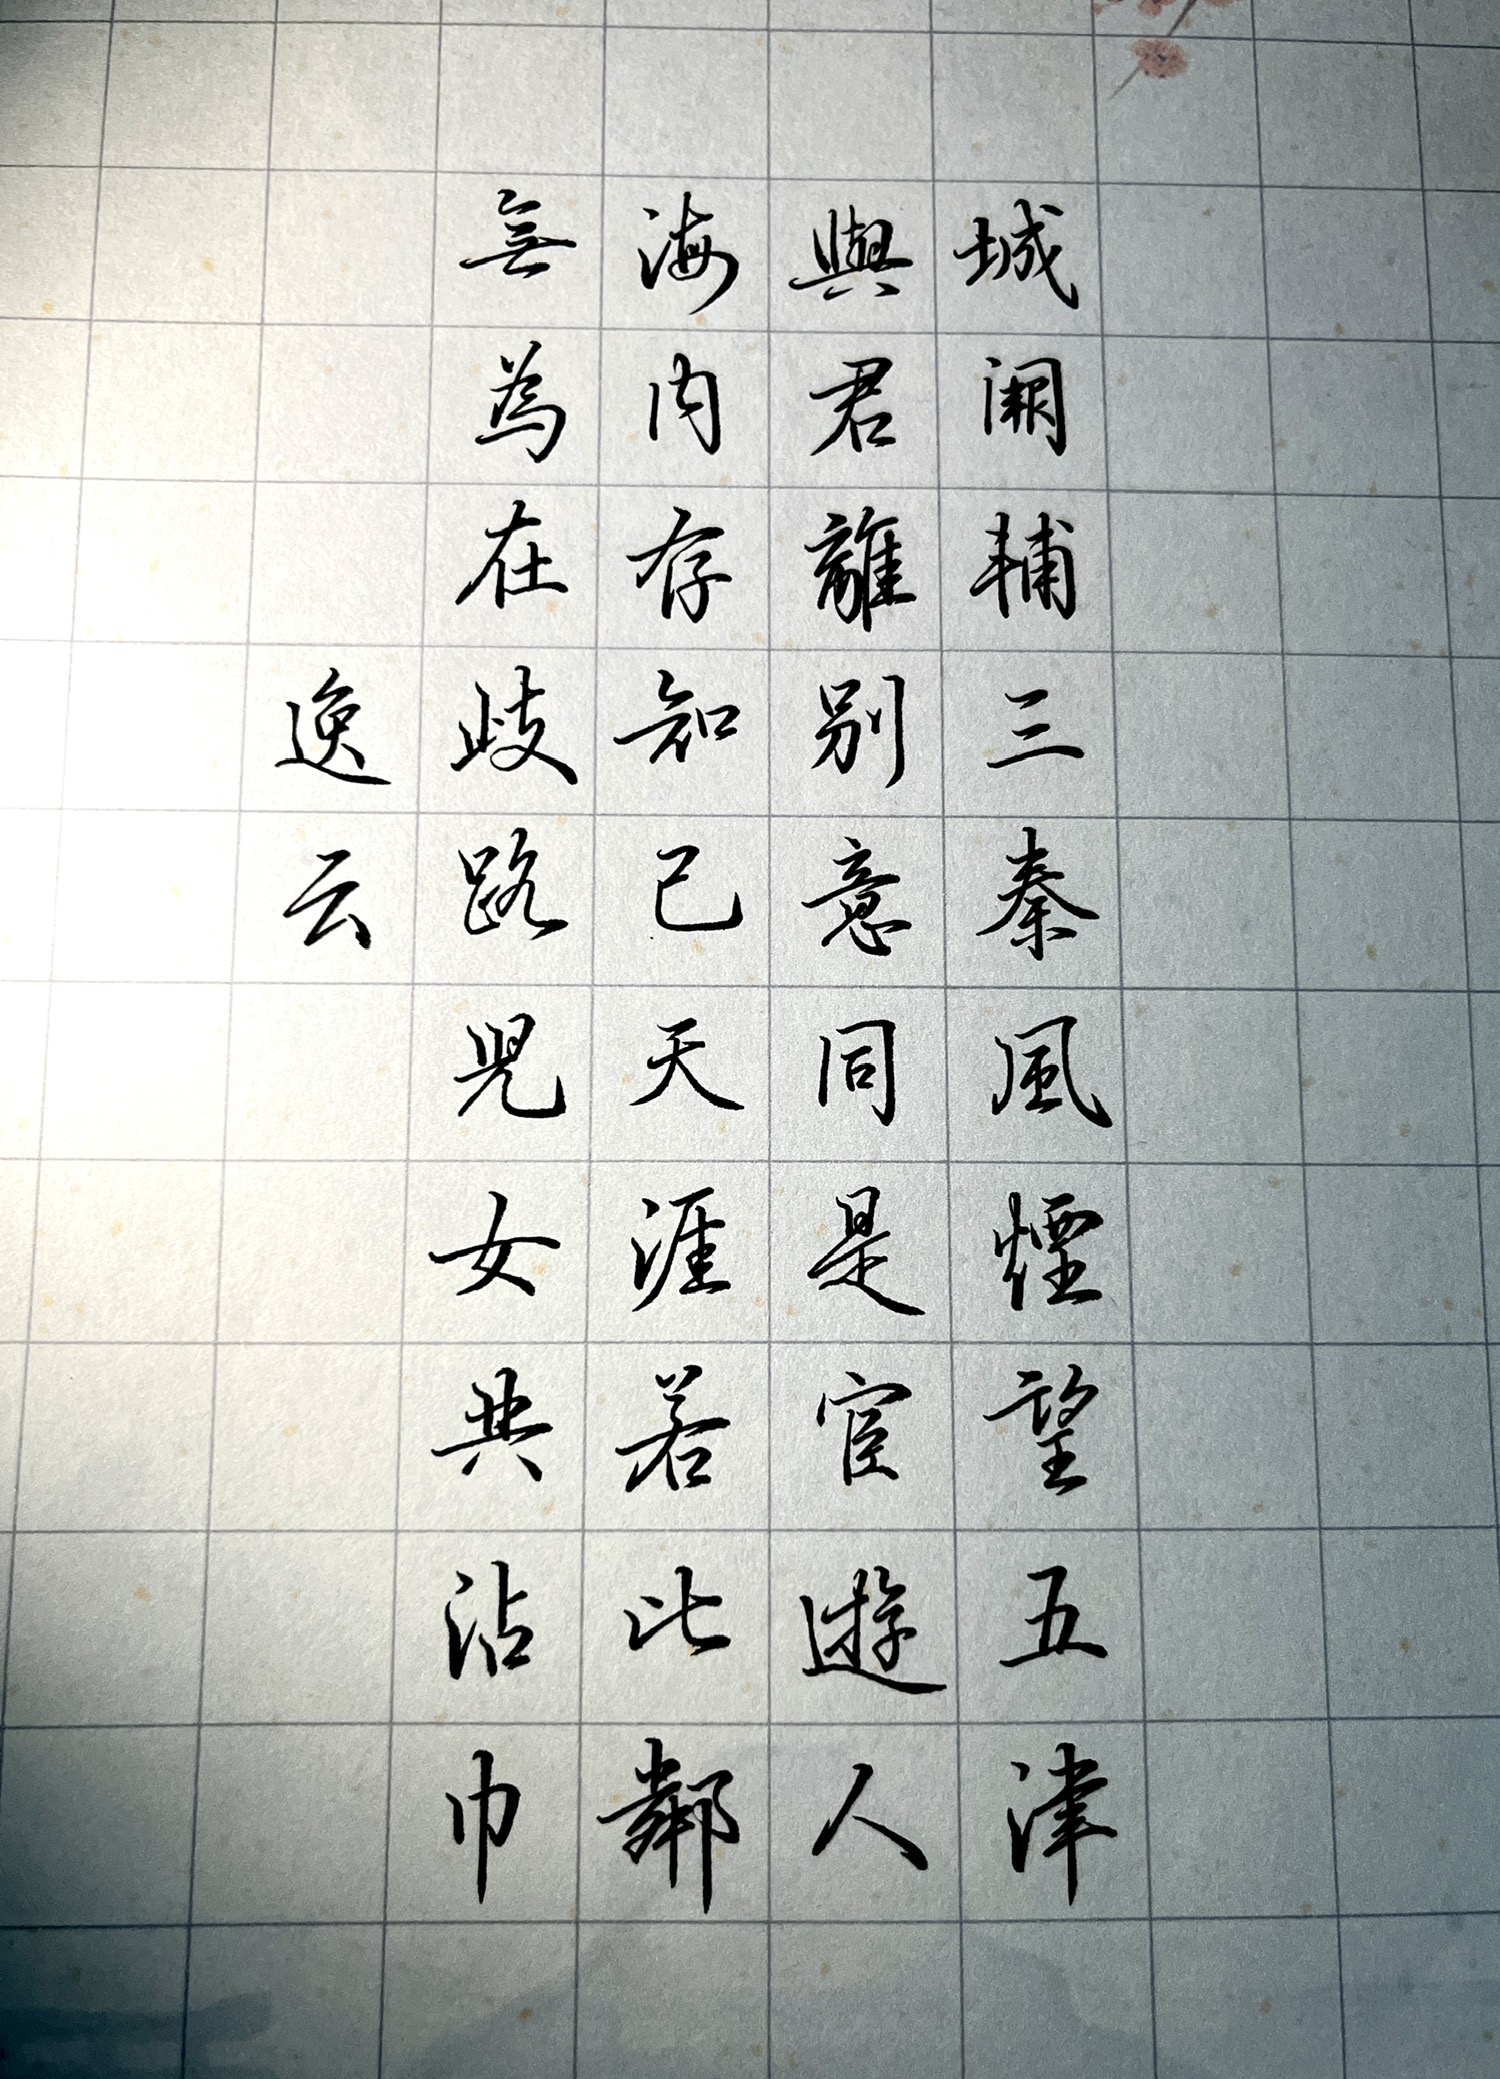 城闕輔三秦風煙望五津
與君離別意同是宦遊人
海内存知己天涯若比鄰
無為在歧路兒女共沾巾
逸云